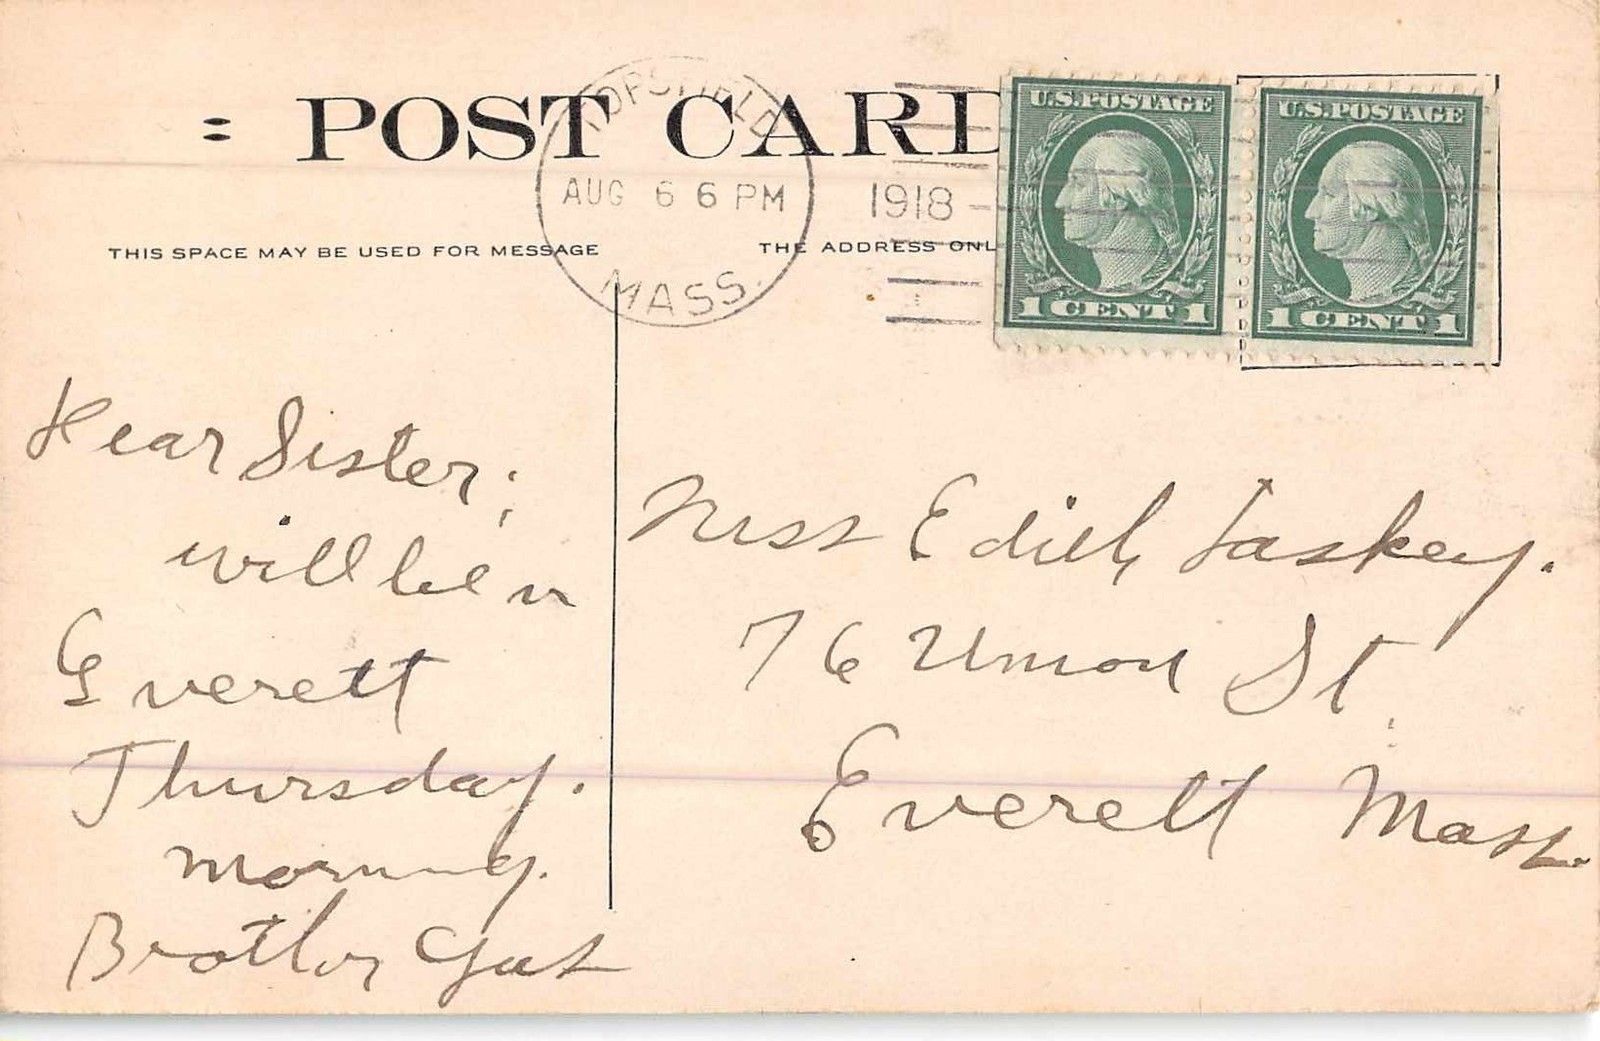 POST CARD
TOPSFIELD
AUG 6 6 PM
1918
MASS.
U.S. POSTAGE
1 CENT 1
U.S. POSTAGE
1 CENT 1
THIS SPACE MAY BE USED FOR MESSAGE
THE ADDRESS ONL
Dear Sister;
will be in
Everett
Thursday.
morning.
Brother
Miss Edith Laskey.
76 Union St.
Everett Mass.